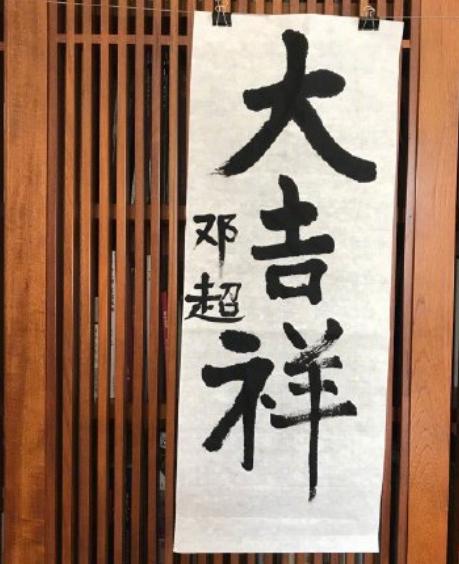 大吉祥
邓超